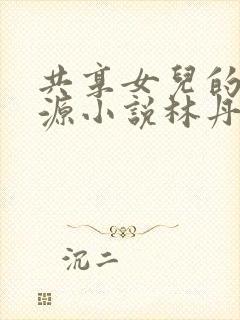 共享女兒的
源小說林丹
沉二